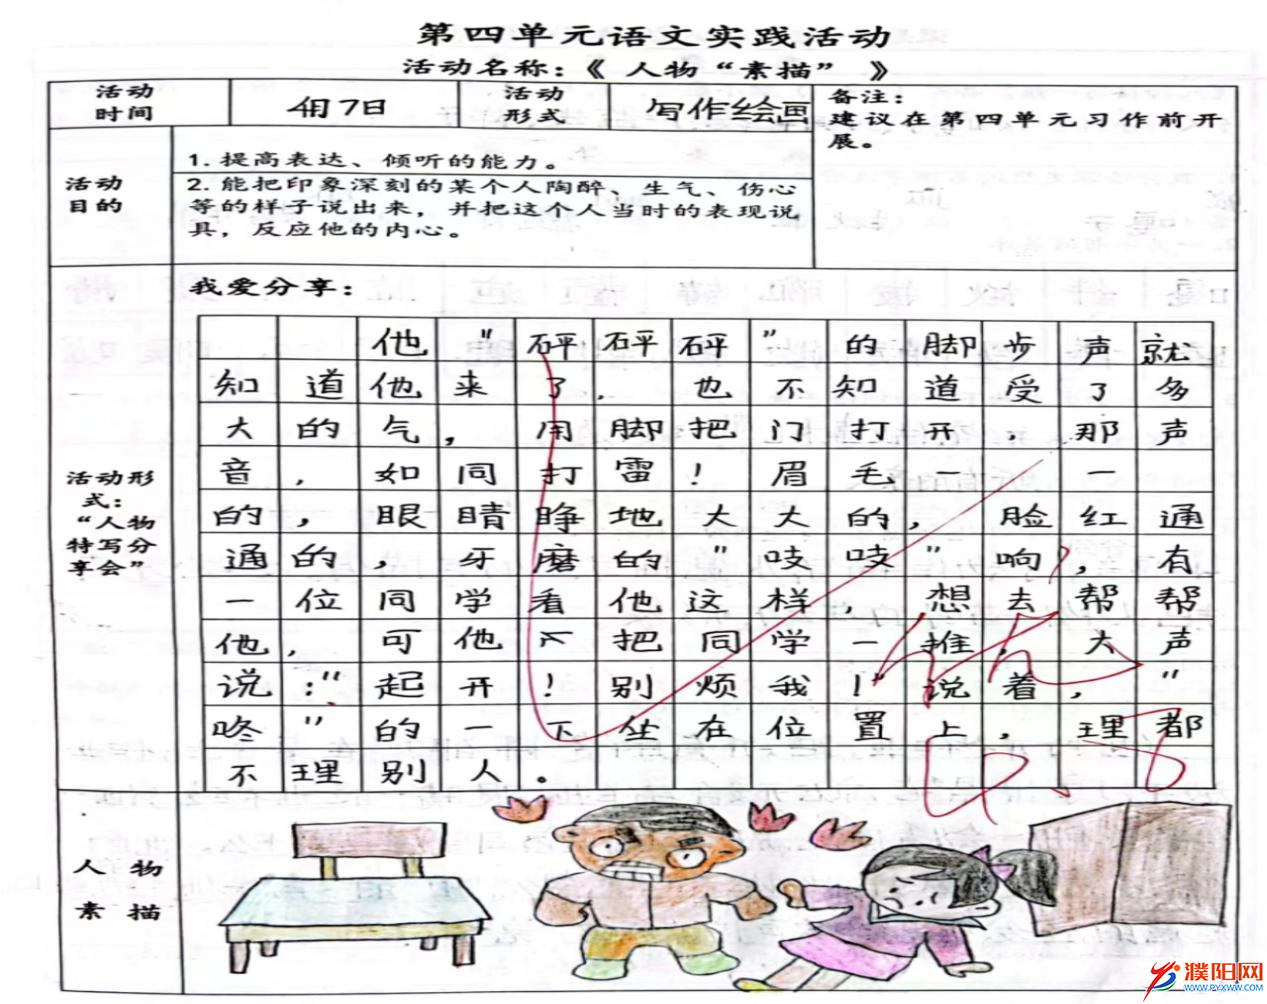 第四单元语文实践活动
活动名称：《 人物“素描” 》
活动时间
4月7日
活动形式
写作绘画
备注：
建议在第四单元习作前开展。
活动目的
1. 提高表达、倾听的能力。
2. 能把印象深刻的某个人陶醉、生气、伤心
等的样子说出来，并把这个人当时的表现说
具，反应他的内心。
活动形式：
“人物特写分享会”
我爱分享：
他“砰砰砰”的脚步声就
知道他来了，也不知道受了多
大的气，用脚把门打开，那声
音，如同打雷！眉毛一一
的，眼睛睁地大大的，脸红通
通的，牙磨的“吱吱”响，有
一位同学看他这样，想去帮帮
他，可他不把同学一推，大声
说：“起开！别烦我！”说着，“
咚”的一下坐在位置上，理都
不理别人。
人物素描
濮阳网
WWW.PYXWW.COM